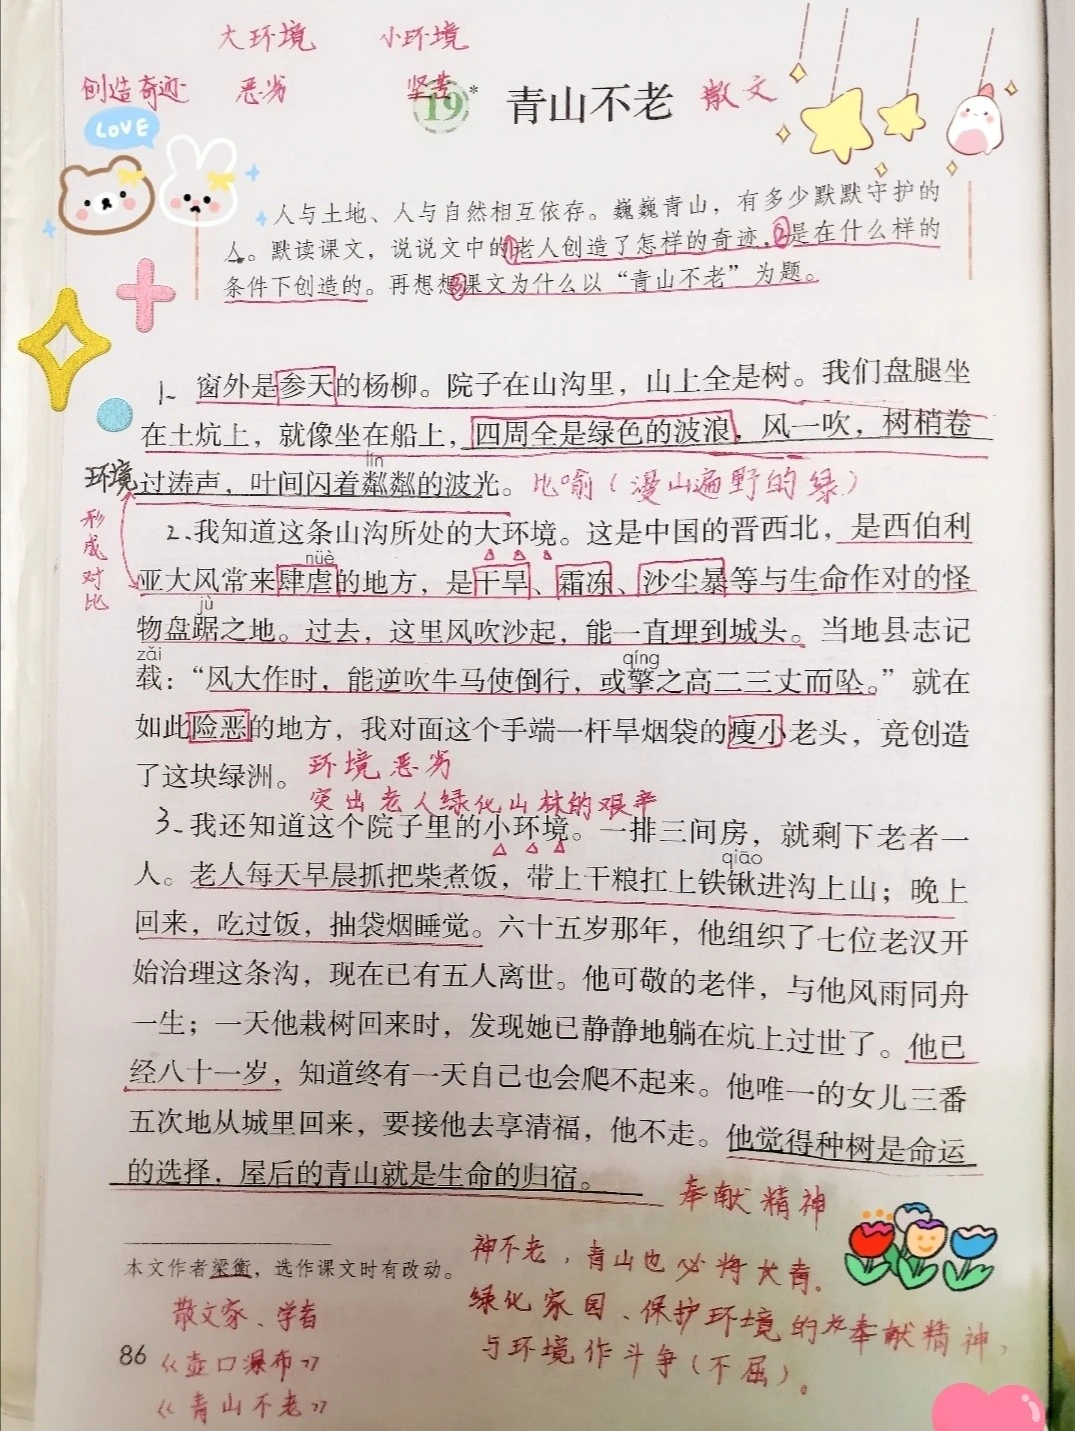 大环境 小环境
创造奇迹 恶劣 坚苦
LOVE
19* 青山不老 散文
人与土地、人与自然相互依存。巍巍青山，有多少默默守护的
人。默读课文，说说文中的①老人创造了怎样的奇迹，②是在什么样的
条件下创造的。再想想③课文为什么以“青山不老”为题。
1、窗外是参天的杨柳。院子在山沟里，山上全是树。我们盘腿坐
在土炕上，就像坐在船上，四周全是绿色的波浪，风一吹，树梢卷
lín
过涛声，叶间闪着粼粼的波光。 比喻（漫山遍野的绿）
环境
形成对比
2、我知道这条山沟所处的大环境。这是中国的晋西北，是西伯利
nüè
亚大风常来肆虐的地方，是干旱、霜冻、沙尘暴等与生命作对的怪
jù
物盘踞之地。过去，这里风吹沙起，能一直埋到城头。当地县志记
zǎi qíng
载：“风大作时，能逆吹牛马使倒行，或擎之高二三丈而坠。”就在
如此险恶的地方，我对面这个手端一杆旱烟袋的瘦小老头，竟创造
了这块绿洲。 环境恶劣
突出老人绿化山林的艰辛
3、我还知道这个院子里的小环境。一排三间房，就剩下老者一
qiāo
人。老人每天早晨抓把柴煮饭，带上干粮扛上铁锹进沟上山；晚上
回来，吃过饭，抽袋烟睡觉。六十五岁那年，他组织了七位老汉开
始治理这条沟，现在已有五人离世。他可敬的老伴，与他风雨同舟
一生；一天他栽树回来时，发现她已静静地躺在炕上过世了。他已
经八十一岁，知道终有一天自己也会爬不起来。他唯一的女儿三番
五次地从城里回来，要接他去享清福，他不走。他觉得种树是命运
的选择，屋后的青山就是生命的归宿。
奉献精神
神不老，青山也必将大青。
绿化家园、保护环境的奉献精神，
与环境作斗争（不屈）。
本文作者梁衡，选作课文时有改动。
散文家、学者
《壶口瀑布》
《青山不老》
86